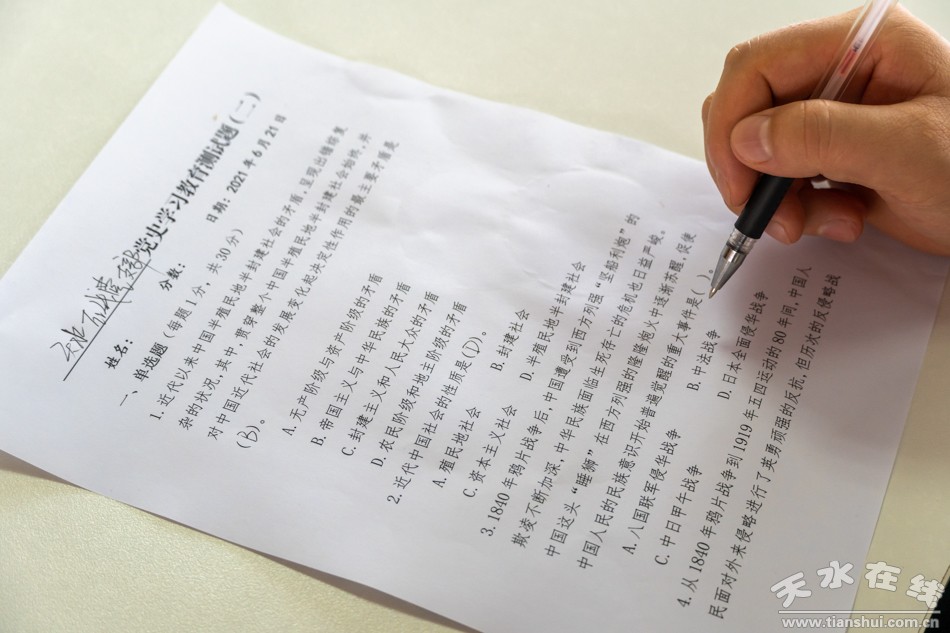 党史学习教育测试题（二）
日期：2021 年 6 月 21 日
姓名：
分数：
一、单选题（每题 1 分，共 30 分）
1. 近代以来中国半殖民地半封建社会的矛盾，呈现出错综复
杂的状况，其中，贯穿整个中国半殖民地半封建社会始终，并
对中国近代社会的发展变化起决定性作用的最主要矛盾是
（B）。
A. 无产阶级与资产阶级的矛盾
B. 帝国主义与中华民族的矛盾
C. 封建主义和人民大众的矛盾
D. 农民阶级和地主阶级的矛盾
2. 近代中国社会的性质是（D）。
A. 殖民地社会 B. 封建社会
C. 资本主义社会 D. 半殖民地半封建社会
3. 1840 年鸦片战争后，中国遭受到西方列强“坚船利炮”的
欺凌不断加深，中华民族面临生死存亡的危机也日益严峻。
中国这头“睡狮”在西方列强的隆隆炮火中逐渐苏醒，促使
中国人民的民族意识开始普遍觉醒的重大事件是（ ）。
A. 八国联军侵华战争 B. 中法战争
C. 中日甲午战争 D. 日本全面侵华战争
4. 从 1840 年鸦片战争到 1919 年五四运动的 80 年间，中国人
民面对外来侵略进行了英勇顽强的反抗，但历次的反侵略战
天水在线
www.tianshui.com.cn